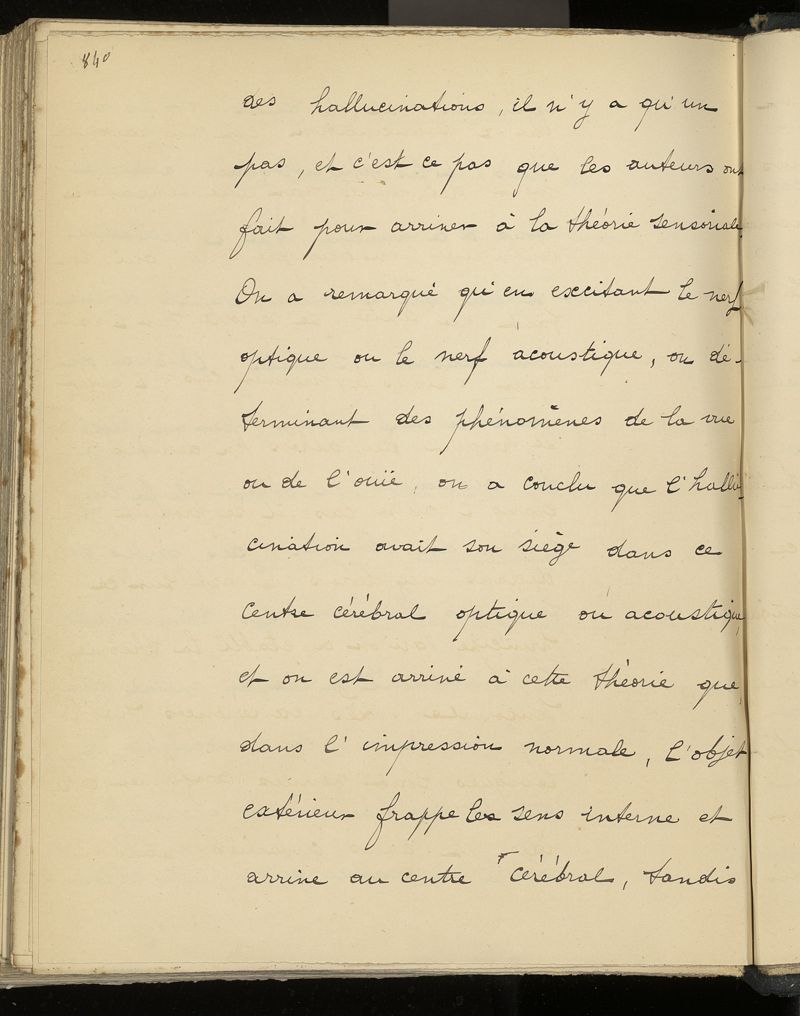 840
des hallucinations, il n'y a qu'un
pas, et c'est ce pas que les auteurs ont
fait pour arriver à la théorie sensoriale.
On a remarqué qu'en excitant le nerf
optique ou le nerf acoustique, on dé-
terminant des phénomènes de la vue
ou de l'ouïe, on a conclu que l'hallu-
cination avait son siège dans ce
centre cérébral optique ou acoustique,
et on est arrivé à cette théorie que,
dans l'impression normale, l'objet
extérieur frappe les sens interne et
arrive au centre cérébral, tandis